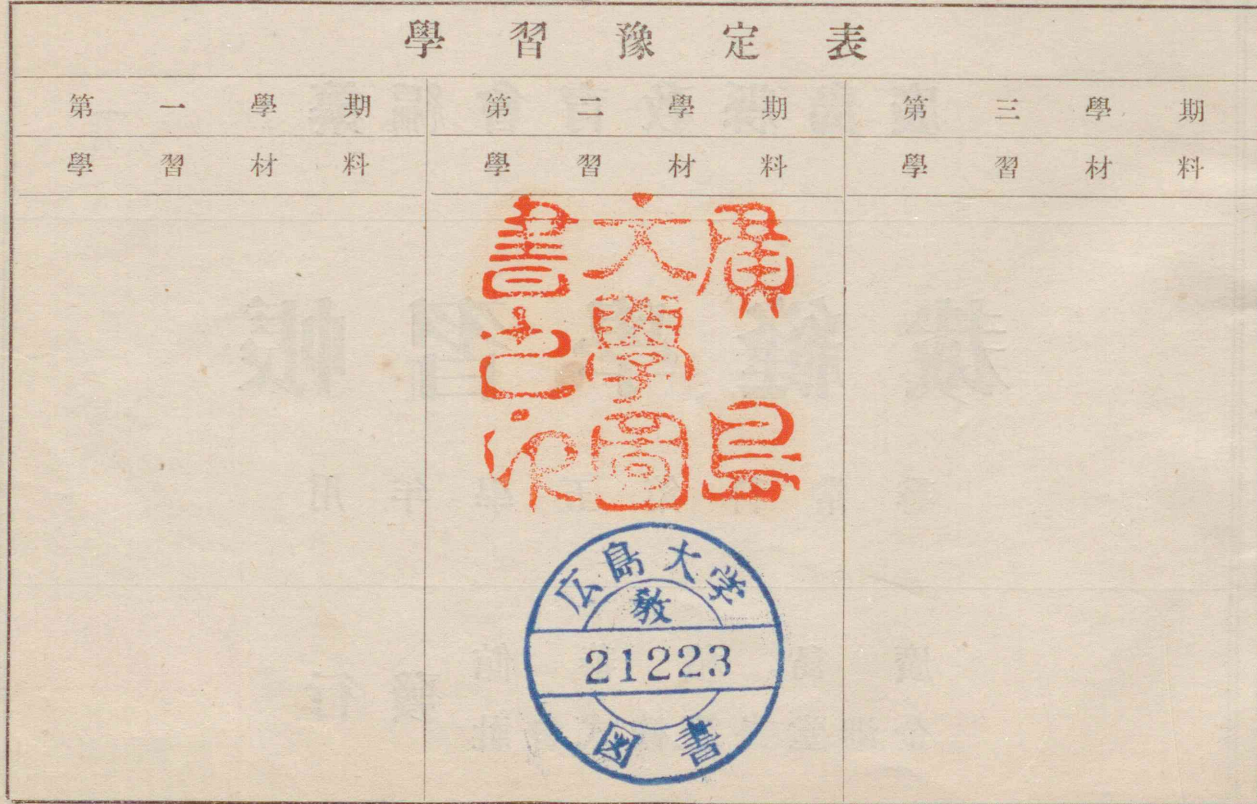 學習豫定表
第一學期 第二學期 第三學期
學習材料 學習材料 學習材料
廣島
大學圖
書之印
広島大学
教
21223
図書